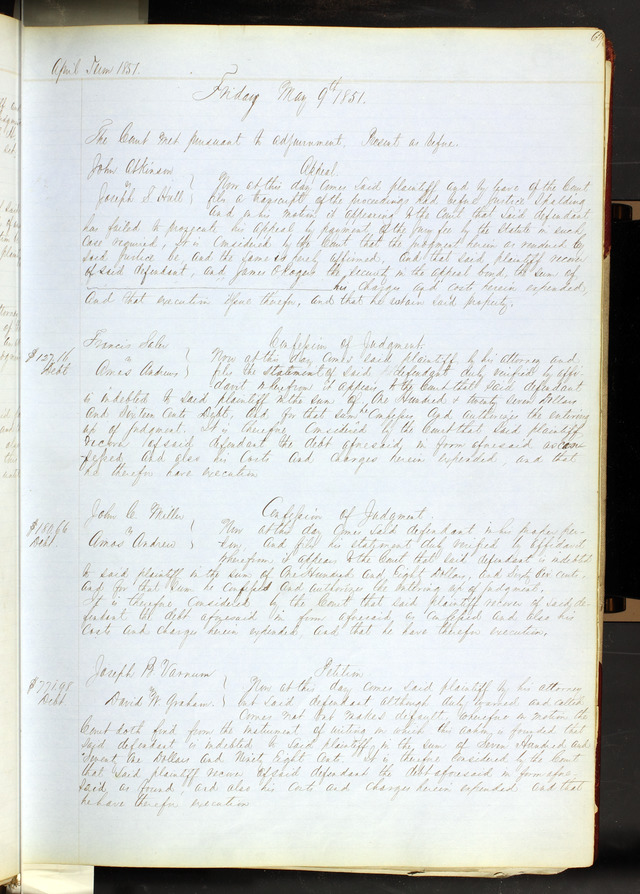 April Term 1851.
Friday May 9th 1851.
The Court met pursuant to adjournment. Present as before.
John Atkinson
Appeal.
vs
Joseph S. Hall
Now at this day comes said plaintiff and by leave of the Court
files a transcript of the proceedings had before Justice Spalding
And on his motion it appearing to the Court that said defendant
has failed to prosecute his appeal by payment of the Jury fee by the Statute in such
case required, it is considered by the Court that the judgment herein as rendered by
said Justice be, and the same is hereby affirmed. And that said plaintiff recover
of said defendant, and James O. the security in the appeal bond, the sum of
his charges and costs herein expended,
and that execution issue therefor, and that he retain said property.
Francis
Confession of Judgment.
$127.16
Debt
vs
Amos Andrew
Now at this day comes said plaintiff by his attorney and
files the statement of said defendant duly verified by affi-
davit wherefrom it appears to the Court that said defendant
is indebted to said plaintiff in the sum of One Hundred & twenty Seven Dollars
and Sixteen Cents Debt, and for that sum Confesses and Authorizes the entering
up of judgment. It is therefore Considered by the Court that said plaintiff
recover of said defendant the debt aforesaid in form aforesaid as con-
fessed and also his Costs and charges herein expended, and that
he therefore have execution
John C. Miller
Confession of Judgment
$180.66
Debt.
vs
Amos Andrew
Now at this day comes said defendant in his proper per-
son, and files his statement duly verified by Affidavit
wherefrom it appears to the Court that said defendant is indebted
to said plaintiff in the sum of One Hundred and Eighty Dollars, and Sixty Six cents,
and for that sum he confesses and authorizes the entering up of judgment.
It is therefore considered by the Court that said plaintiff recover of said de-
fendant the debt aforesaid in form aforesaid, as Confessed and also his
Costs and charges herein expended, and that he have therefor execution.
Joseph B. Varnum
Petition
$771.98
Debt
vs
David W. Graham.
Now at this day comes said plaintiff by his attorney
but said defendant although duly warned and called
Comes not but makes default, wherefore on motion the
Court doth find from the instrument of writing on which this action is founded that
said defendant is indebted to said plaintiff in the sum of Seven Hundred and
Seventy One Dollars and Ninety Eight Cents. It is therefore Considered by the Court
that said plaintiff recover of said defendant the debt aforesaid in form afore-
said as found, and also his costs and charges herein expended and that
he have therefor execution